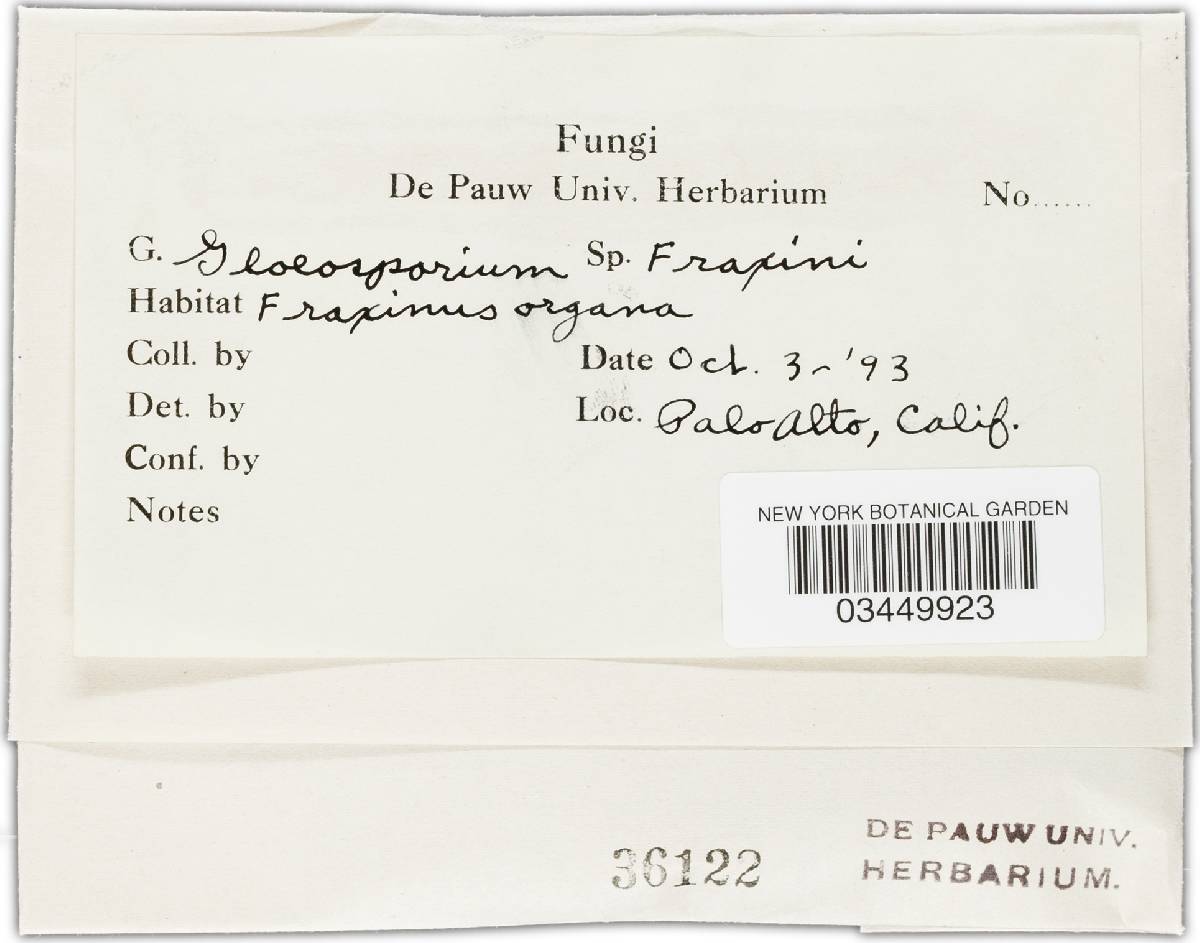 Fungi
De Pauw Univ. Herbarium No......
G. Gloeosporium Sp. Fraxini
Habitat Fraxinus organa
Coll. by Date Oct. 3-'93
Det. by Loc. Palo Alto, Calif.
Conf. by
Notes
NEW YORK BOTANICAL GARDEN
03449923
36122
DE PAUW UNIV.
HERBARIUM.